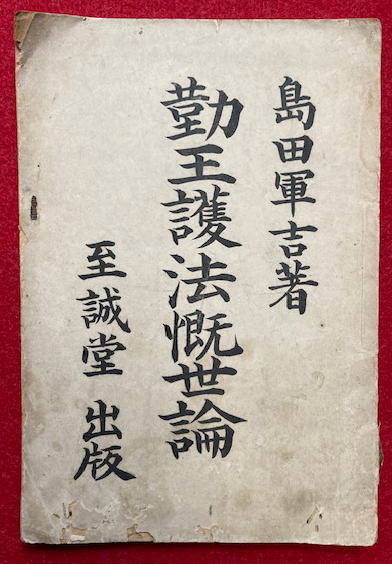 島田軍吉著
勤王護法慨世論
至誠堂 出版